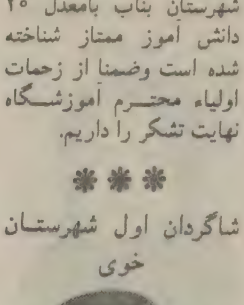 شهرستان بناب بامعدل ۲۰
دانش آموز ممتاز شناخته
شده است وضمنا از زحمات
اولیاء محتــرم آموزشــگاه
نهایت تشکر را داریم.
***
شاگردان اول شهرستــان
خوی